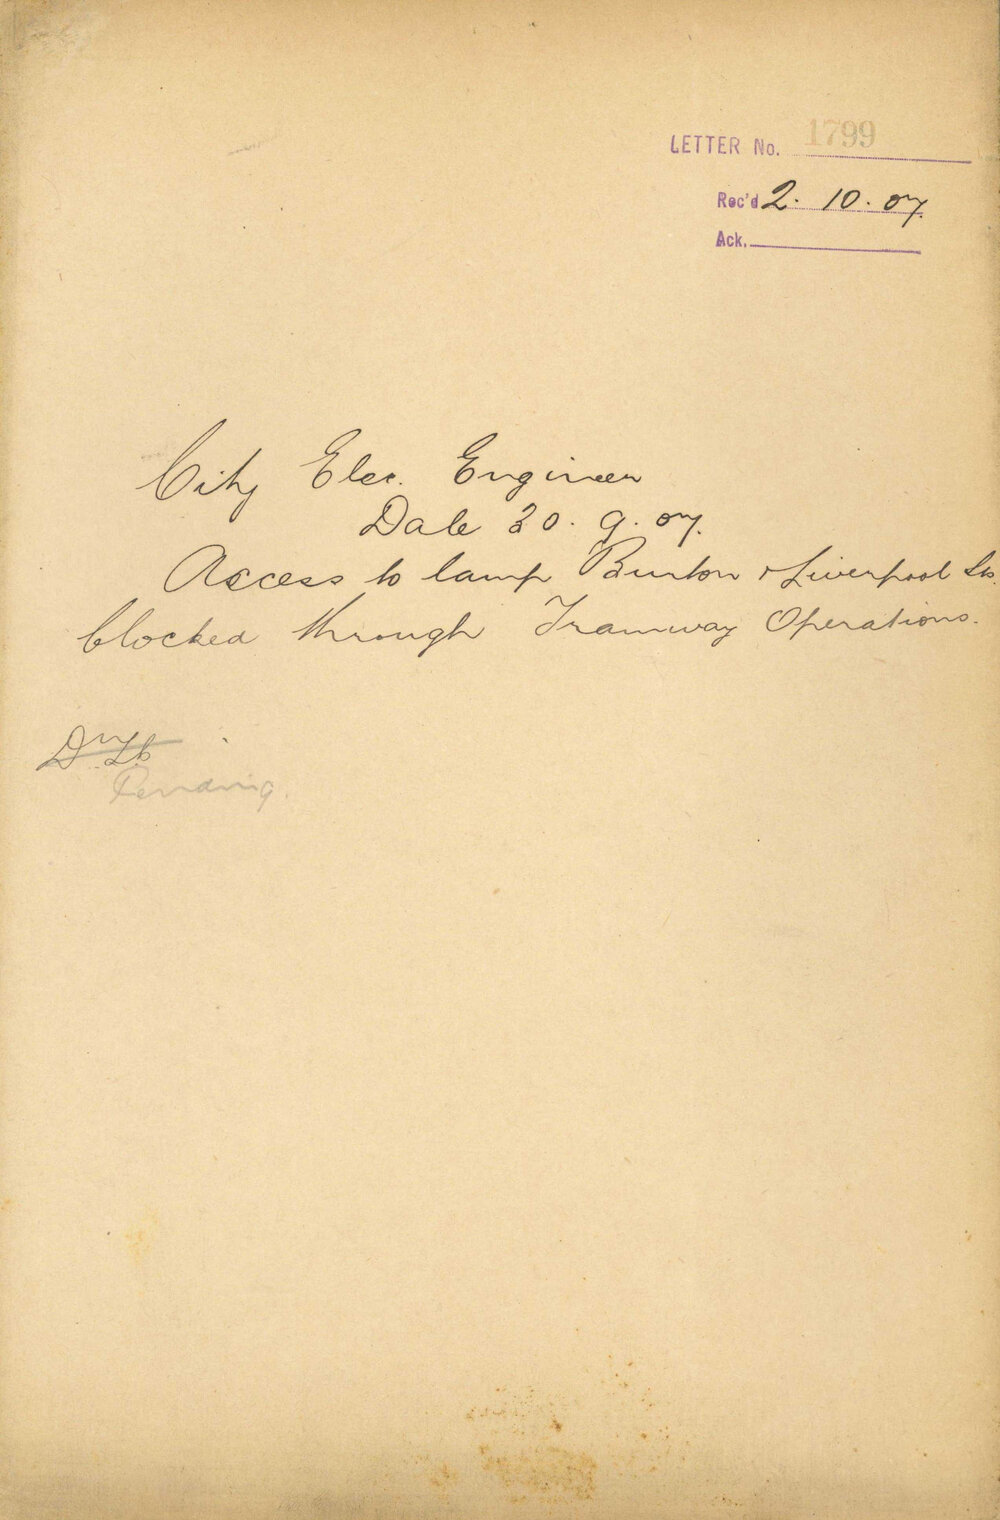 LETTER No. 1799
Rec'd 2. 10. 07.
Ack.
City Elec. Engineer
Date 30. 9. 07.
Access to lamp Burton & Liverpool Sts.
blocked through Tramway Operations.
Pending.